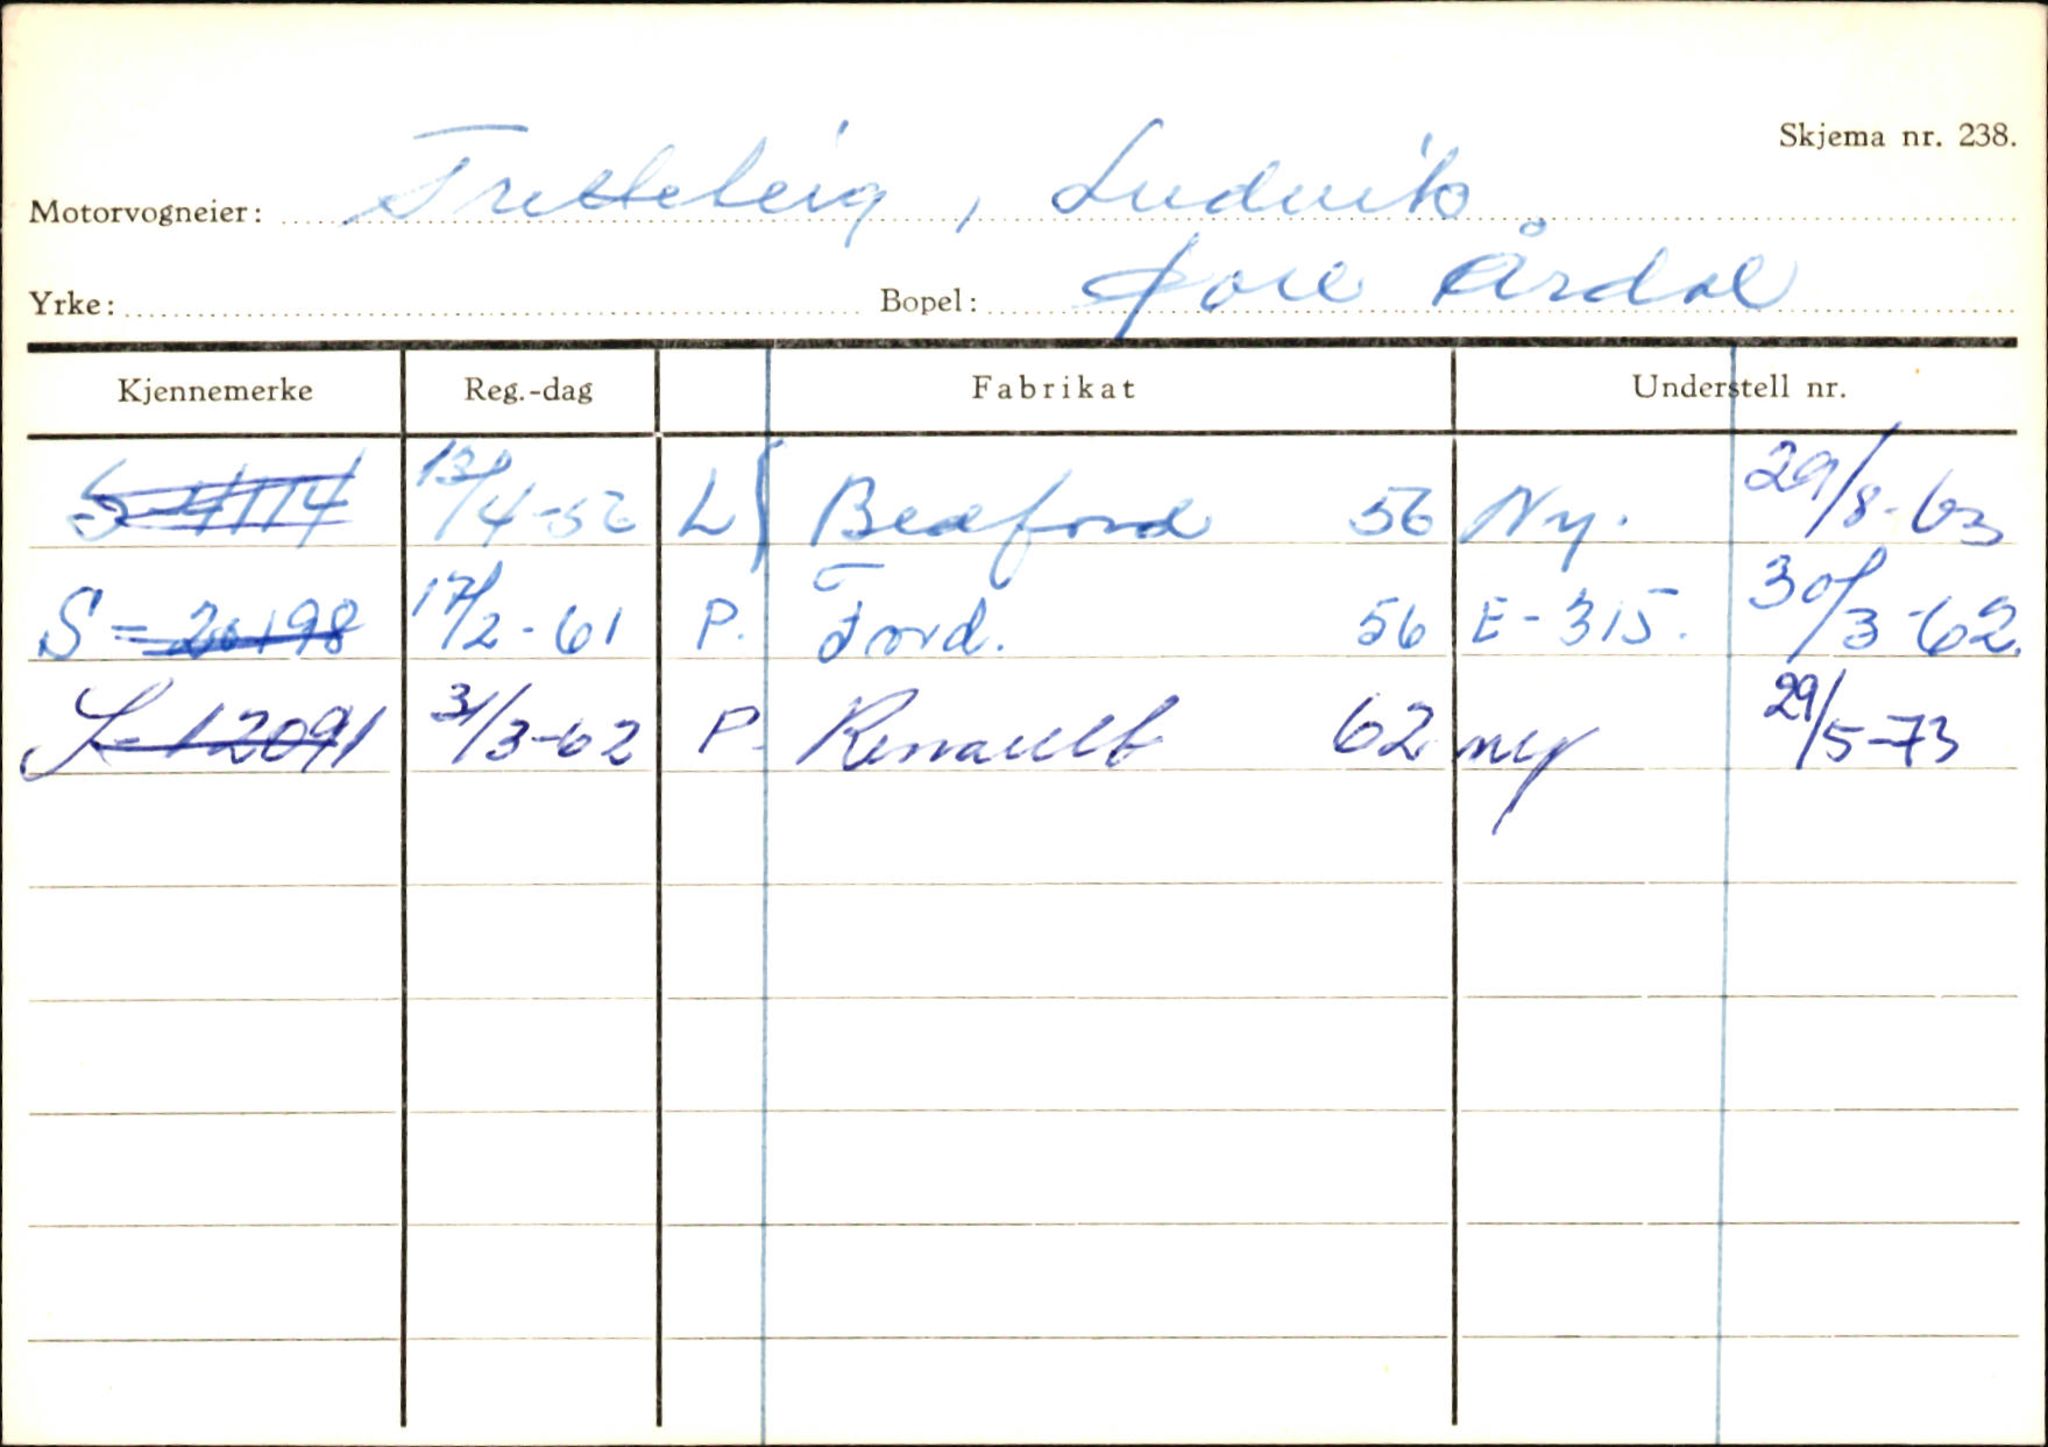 Skjema nr. 238.
Motorvogneier: Tretteteig, Ludvik
Yrke: Bopel: Øvre Årdal
Kjennemerke Reg.-dag Fabrikat Understell nr.
S-4114 13/4-56 L Bedford 56 Ny. 29/8-63
S-20198 17/2-61 P. Ford. 56 E-315. 30/3-62.
S-12091 31/3-62 P. Renault 62 ny 29/5-73